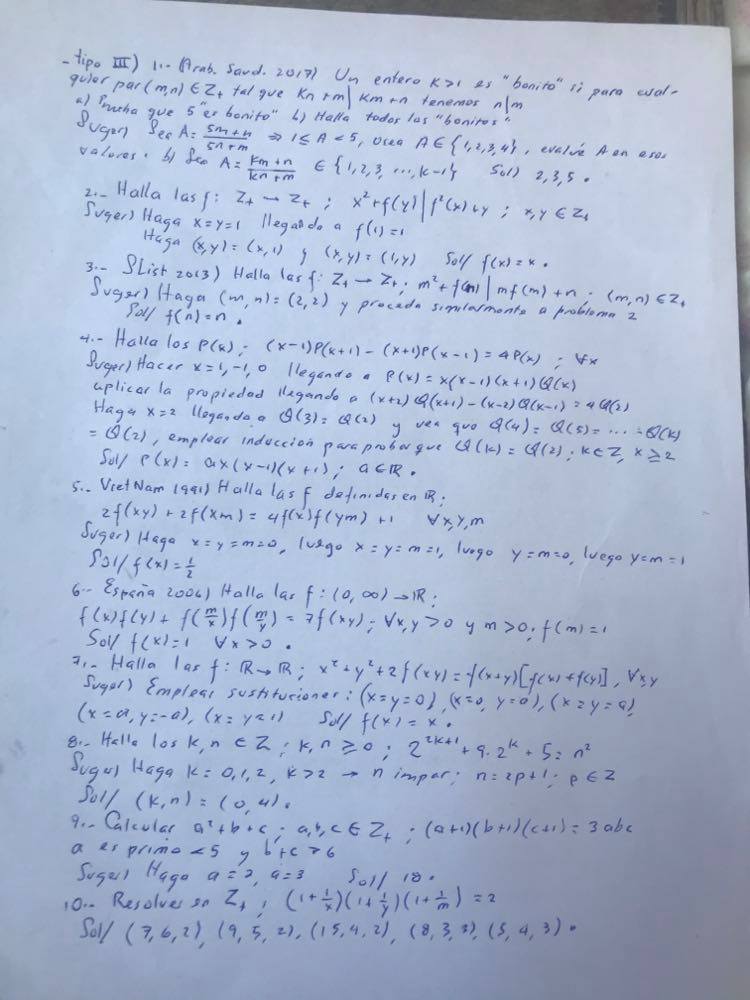 - tipo III) 1.- (Arab. Saud. 2017) Un entero k>1 es "bonito" si para cual-
quier par (m,n) ∈ Z+ tal que kn+m | km+n tenemos n|m
a) Prueba que 5 "es bonito" b) Halla todos los "bonitos"
Suger) Sea A = (5m+n)/(5n+m) ⇒ 1 ≤ A < 5, osea A ∈ {1,2,3,4}, evalúe A en esos
valores. b) Sea A = (km+n)/(kn+m) ∈ {1,2,3, ..., k-1} Sol) 2,3,5 .
2.- Halla las f: Z+ → Z+ ; x²+f(y) | f²(x)+y ; x,y ∈ Z+
Suger) Haga x=y=1 llegando a f(1)=1
Haga (x,y) = (x,1) y (x,y) = (1,y) Sol/ f(x)=x .
3.- SList 2013) Halla las f: Z+ → Z+ ; m²+f(n) | mf(m)+n ; (m,n) ∈ Z+
Suger) Haga (m,n) = (2,2) y proceda similarmente a problema 2
Sol/ f(n)=n .
4.- Halla los P(x) ; (x-1)P(x+1) - (x+1)P(x-1) = 4P(x) ; ∀x
Suger) Hacer x=1,-1,0 llegando a P(x) = x(x-1)(x+1)Q(x)
aplicar la propiedad llegando a (x+2)Q(x+1) - (x-2)Q(x-1) = 4Q(2)
Haga x=2 llegando a Q(3) = Q(2) y vea que Q(4) = Q(5) = ... = Q(k)
= Q(2), emplear inducción para probar que Q(k) = Q(2) ; k∈Z, x ≥ 2
Sol/ P(x) = ax(x-1)(x+1) ; a∈R .
5.- VietNam 1991) Halla las f definidas en R ;
2f(xy) + 2f(xm) = 4f(x)f(ym) + 1 ∀x,y,m
Suger) Haga x=y=m=0, luego x=y=m=1, luego y=m=0, luego y=m=1
Sol/ f(x) = 1/2
6.- España 2006) Halla las f: (0,∞) → R ;
f(x)f(y) + f(m/x)f(m/y) = 7f(xy) ; ∀x,y>0 y m>0 ; f(m)=1
Sol/ f(x)=1 ∀x>0 .
7.- Halla las f: R → R ; x²+y²+2f(xy) = f(x+y)[f(x)+f(y)] , ∀x,y
Suger) Emplear sustituciones: (x=y=0), (x=0, y=a), (x=y=a),
(x=a, y=-a), (x=y=1) Sol/ f(x)=x .
8.- Halla los k,n ∈ Z ; k,n ≥ 0 ; 2^(2k+1) + 9.2^k + 5 = n²
Suger) Haga k=0,1,2, k>2 → n impar ; n=2p+1 ; p∈Z
Sol/ (k,n) = (0,4) .
9.- Calcular a²+b+c ; a,b,c ∈ Z+ ; (a+1)(b+1)(c+1) = 3abc
a es primo <5 y b+c >6
Suger) Haga a=2, a=3 Sol/ 18 .
10.- Resolver en Z+ ; (1+1/x)(1+1/y)(1+1/m) = 2
Sol/ (7,6,2), (9,5,2), (15,4,2), (8,3,3), (5,4,3) .